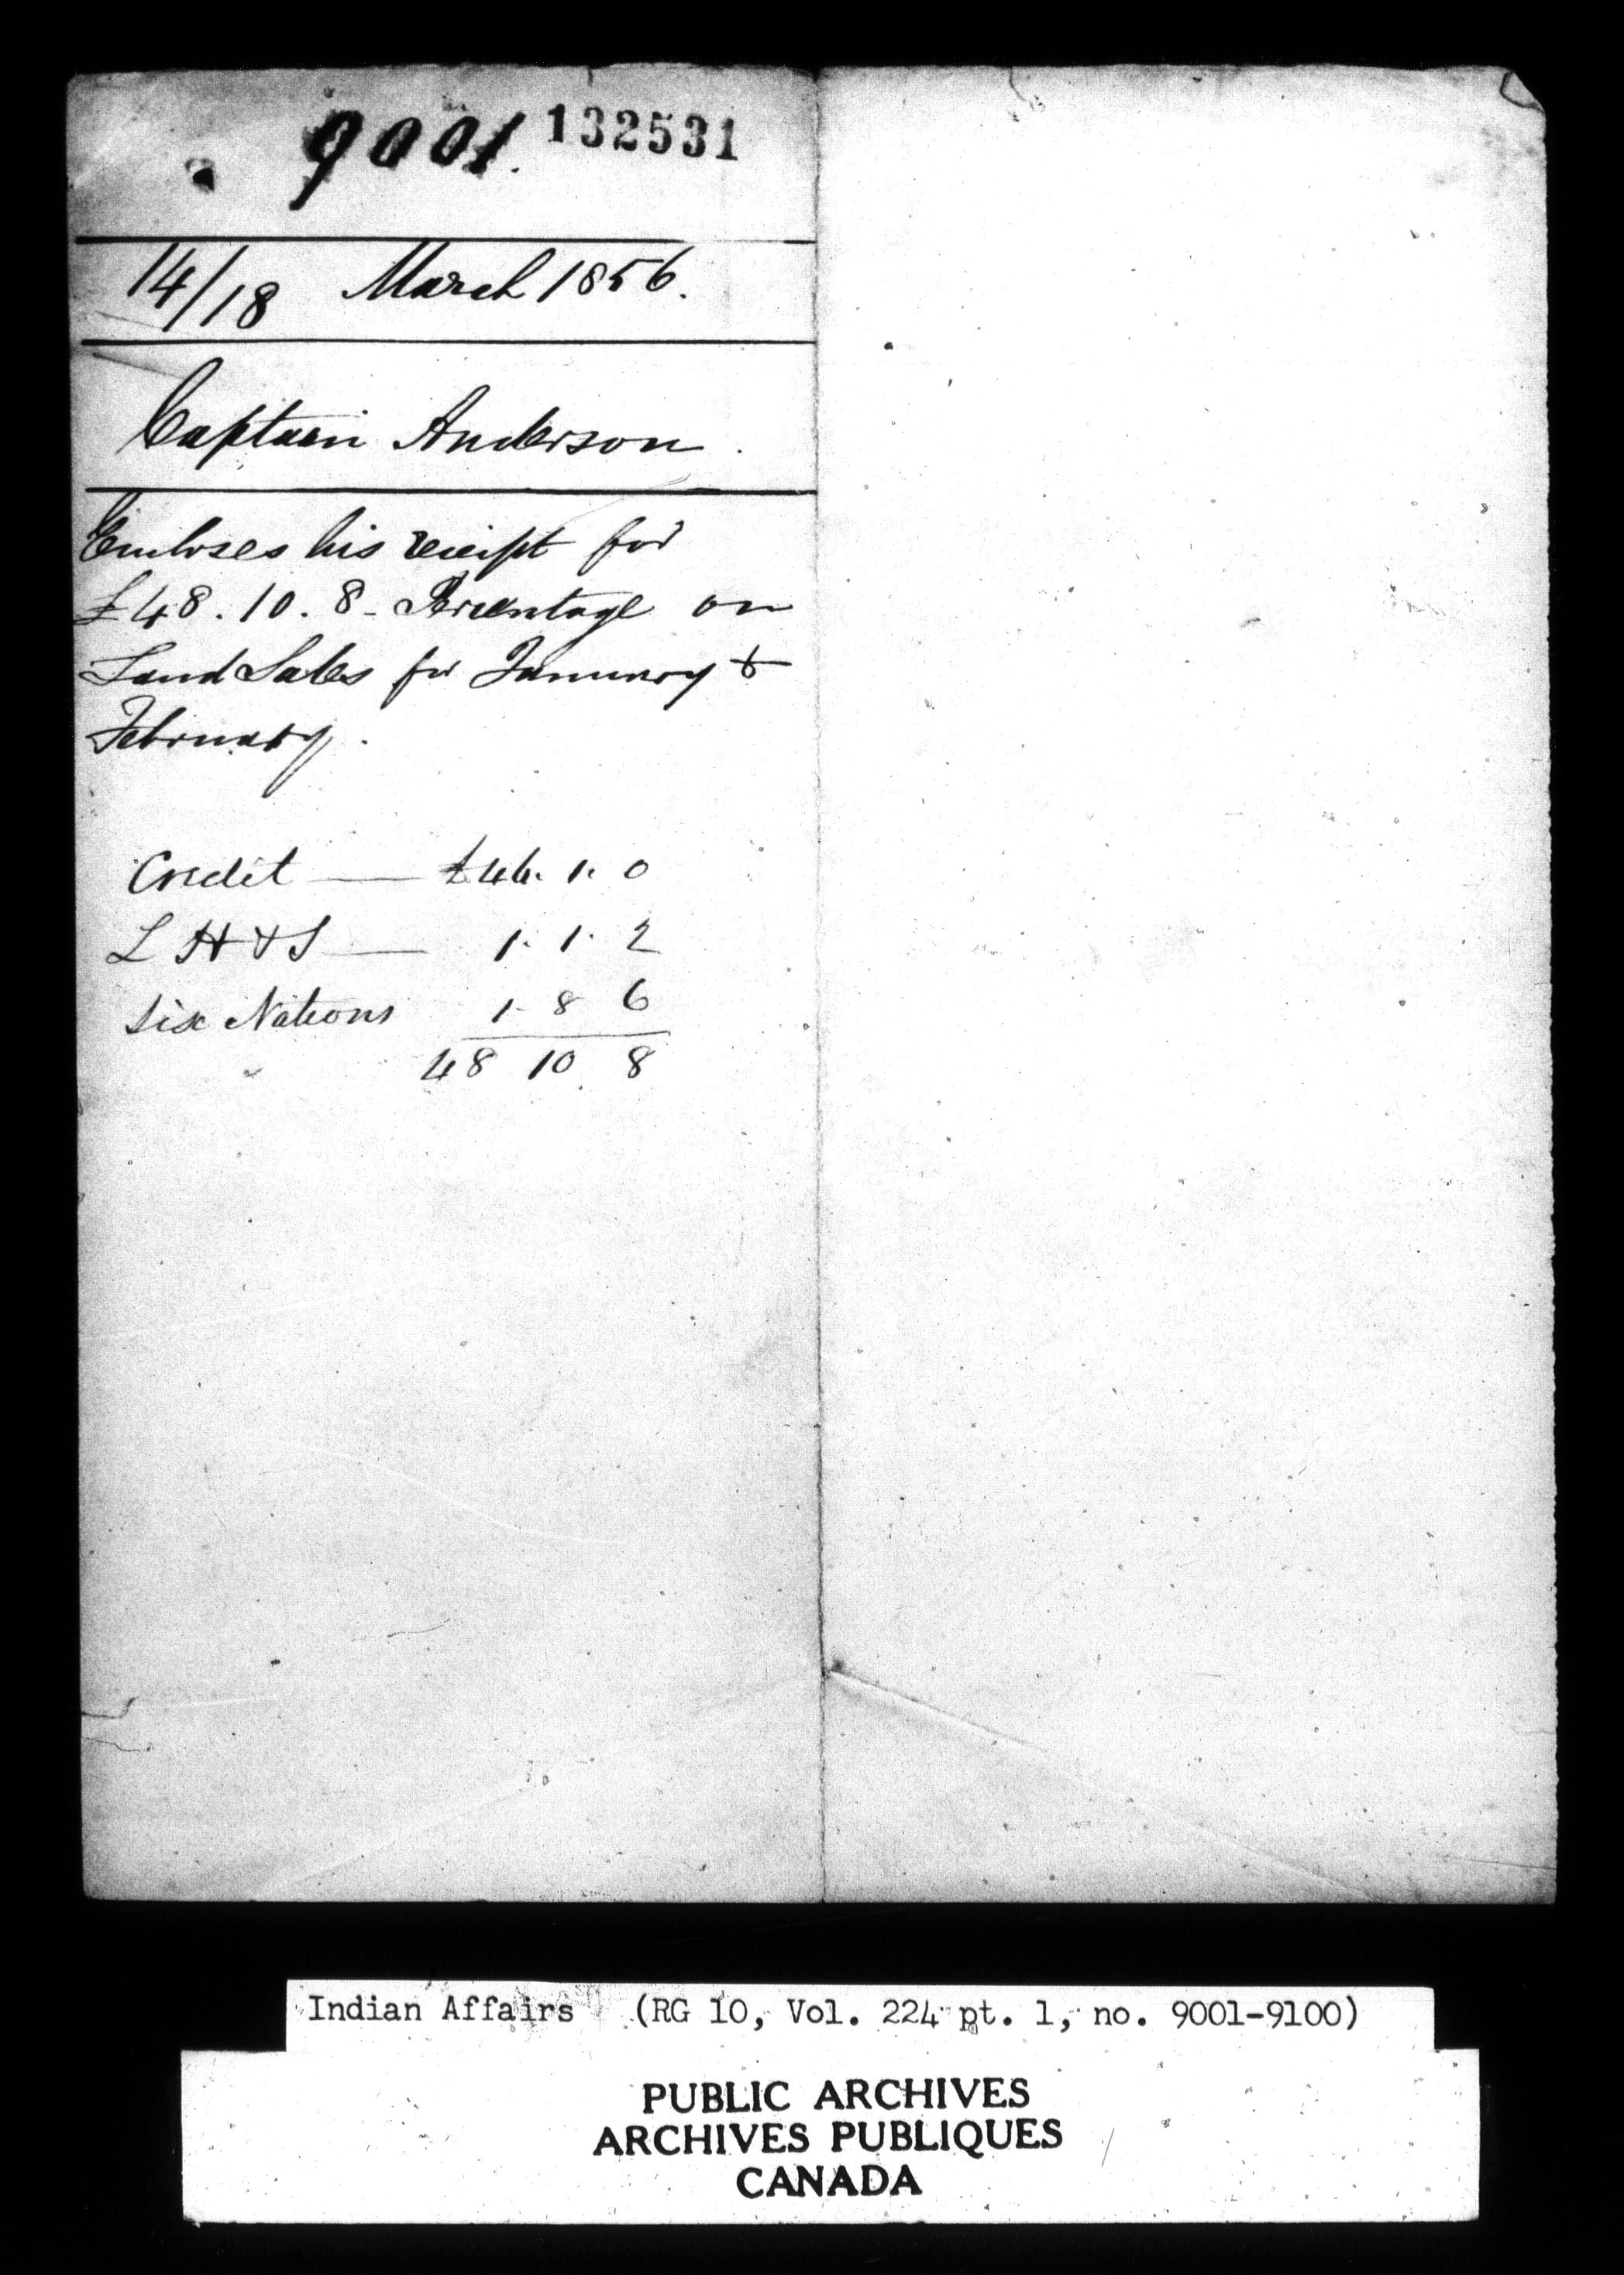 9001. 132531
14/18 March 1856.
Captain Anderson.
Encloses his receipt for
£48.10.8 - Percentage on
Land Sales for January &
February.
Credit — £46. 1. 0
L H & S — 1. 1. 2
Six Nations 1. 8 6
48 10 8
Indian Affairs (RG 10, Vol. 224 pt. 1, no. 9001-9100)
PUBLIC ARCHIVES
ARCHIVES PUBLIQUES
CANADA